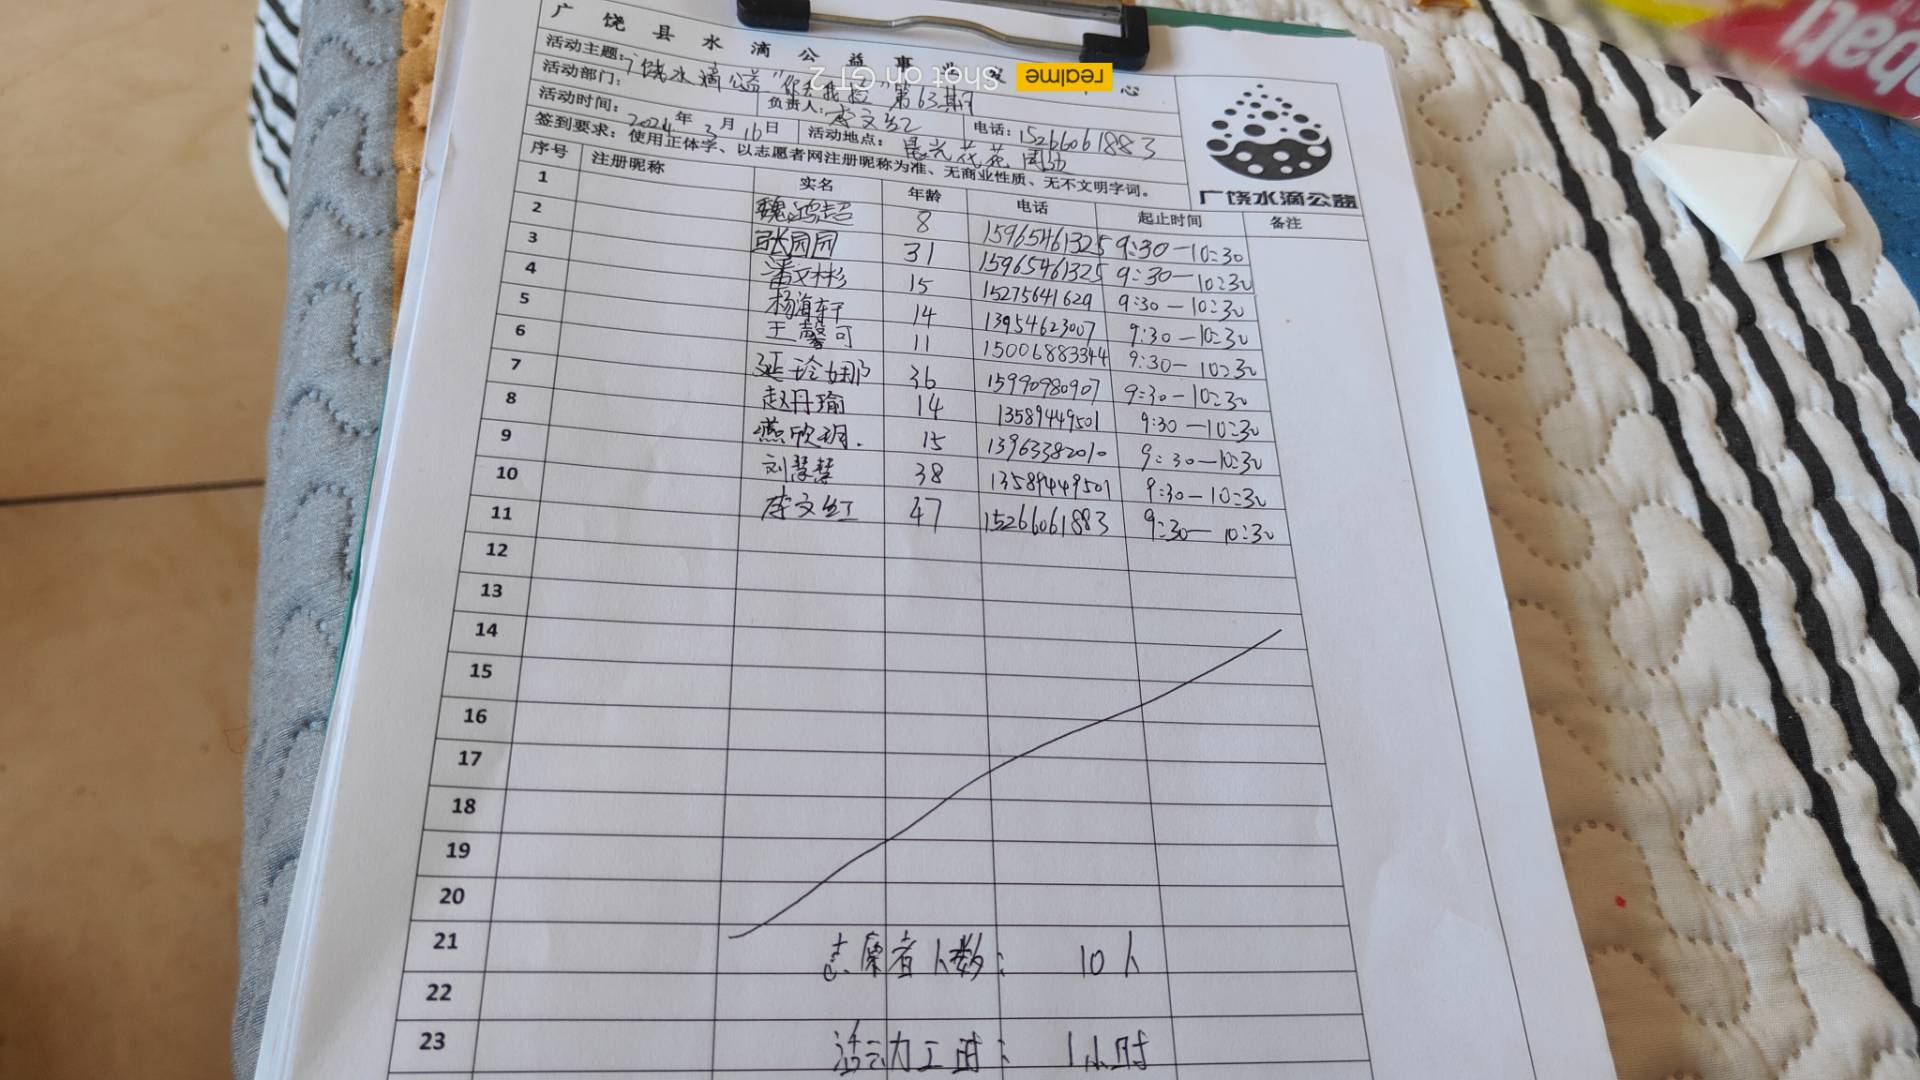 广饶县水滴公益事业发 中心
活动主题:广饶水滴公益"你丢我捡"第63期
活动部门: 负责人:李文红 电话:15266061883
活动时间:2024年3月16日 活动地点:晨光花苑周边
签到要求:使用正体字、以志愿者网注册昵称为准、无商业性质、无不文明字词。
广饶水滴公益
序号 注册昵称 实名 年龄 电话 起止时间 备注
1 魏鸿超 8 15965461325 9:30-10:30
2 张园园 31 15965461325 9:30-10:30
3 潘文彬 15 15275641629 9:30-10:30
4 杨海轩 14 13954623007 9:30-10:30
5 王馨可 11 15006883344 9:30-10:30
6 延玲娜 36 15990980907 9:30-10:30
7 赵丹瑜 14 13589449501 9:30-10:30
8 燕欣玥. 15 13963382010 9:30-10:30
9 刘慧慧 38 13589449501 9:30-10:30
10 李文红 47 15266061883 9:30-10:30
11
12
13
14
15
16
17
18
19
20
21 志愿者人数: 10人
22
23 活动工时: 1小时
realme Shot on GT 2
bati